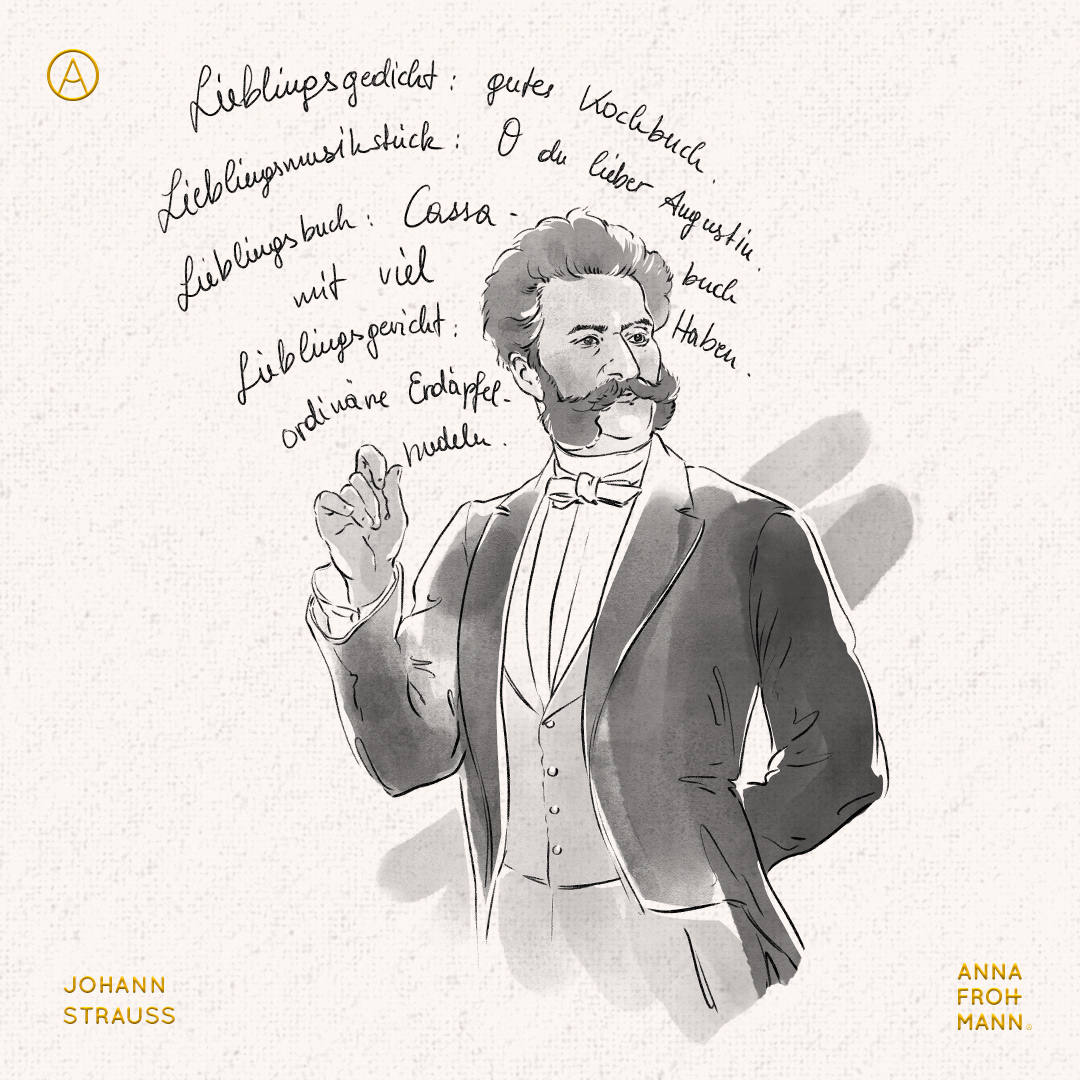 A
Lieblingsgedicht: gutes Kochbuch.
Lieblingsmusikstück: O du lieber Augustin.
Lieblingsbuch: Cassa-buch
mit viel Haben.
Lieblingsgericht:
ordinäre Erdäpfel-
nudeln.
JOHANN
STRAUSS
ANNA
FROH
MANN